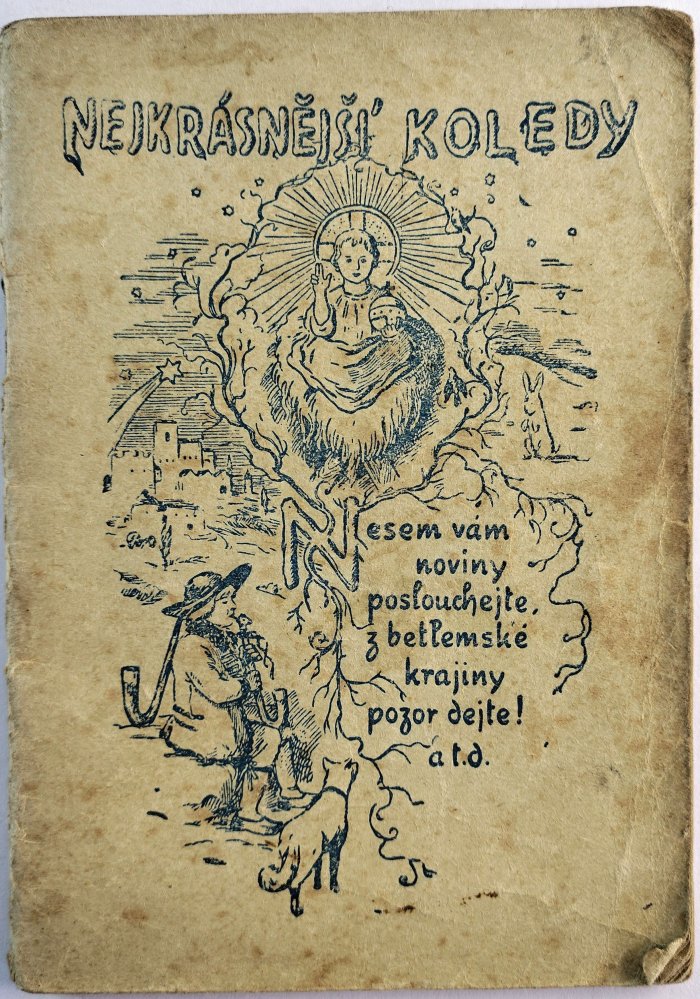 NEJKRÁSNĚJŠÍ KOLEDY
Nesem vám
noviny
poslouchejte,
z betlemské
krajiny
pozor dejte!
a t.d.